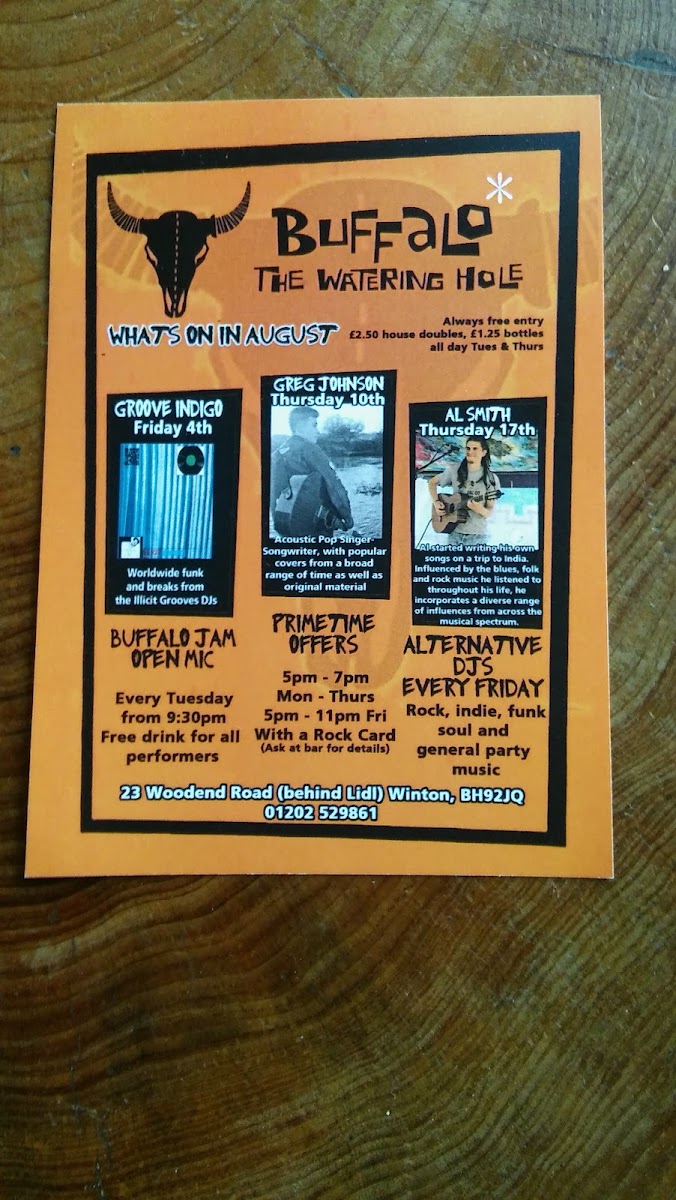 BUFFALO*
THE WATERING HOLE
WHAT'S ON IN AUGUST
Always free entry
£2.50 house doubles, £1.25 bottles
all day Tues & Thurs
GROOVE INDIGO
Friday 4th
Worldwide funk
and breaks from
the Illicit Grooves DJs
GREG JOHNSON
Thursday 10th
Acoustic Pop Singer-
Songwriter, with popular
covers from a broad
range of time as well as
original material
AL SMITH
Thursday 17th
Al started writing his own
songs on a trip to India.
Influenced by the blues, folk
and rock music he listened to
throughout his life, he
incorporates a diverse range
of influences from across the
musical spectrum.
BUFFALO JAM
OPEN MIC
Every Tuesday
from 9:30pm
Free drink for all
performers
PRIMETIME
OFFERS
5pm - 7pm
Mon - Thurs
5pm - 11pm Fri
With a Rock Card
(Ask at bar for details)
ALTERNATIVE
DJS
EVERY FRIDAY
Rock, indie, funk
soul and
general party
music
23 Woodend Road (behind Lidl) Winton, BH92JQ
01202 529861